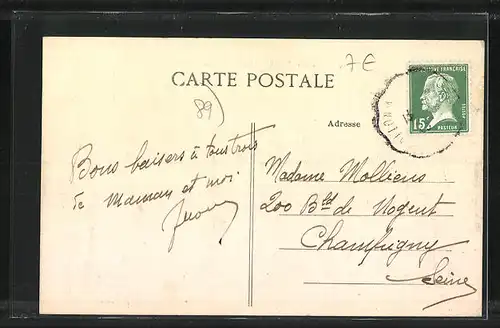 7€
CARTE POSTALE
89)
Adresse
POSTE FRANÇAISE
15c
PASTEUR
Bons baisers à tous trois
de maman et moi
Madame Molliens
200 Bld de Nogent
Champigny
Seine